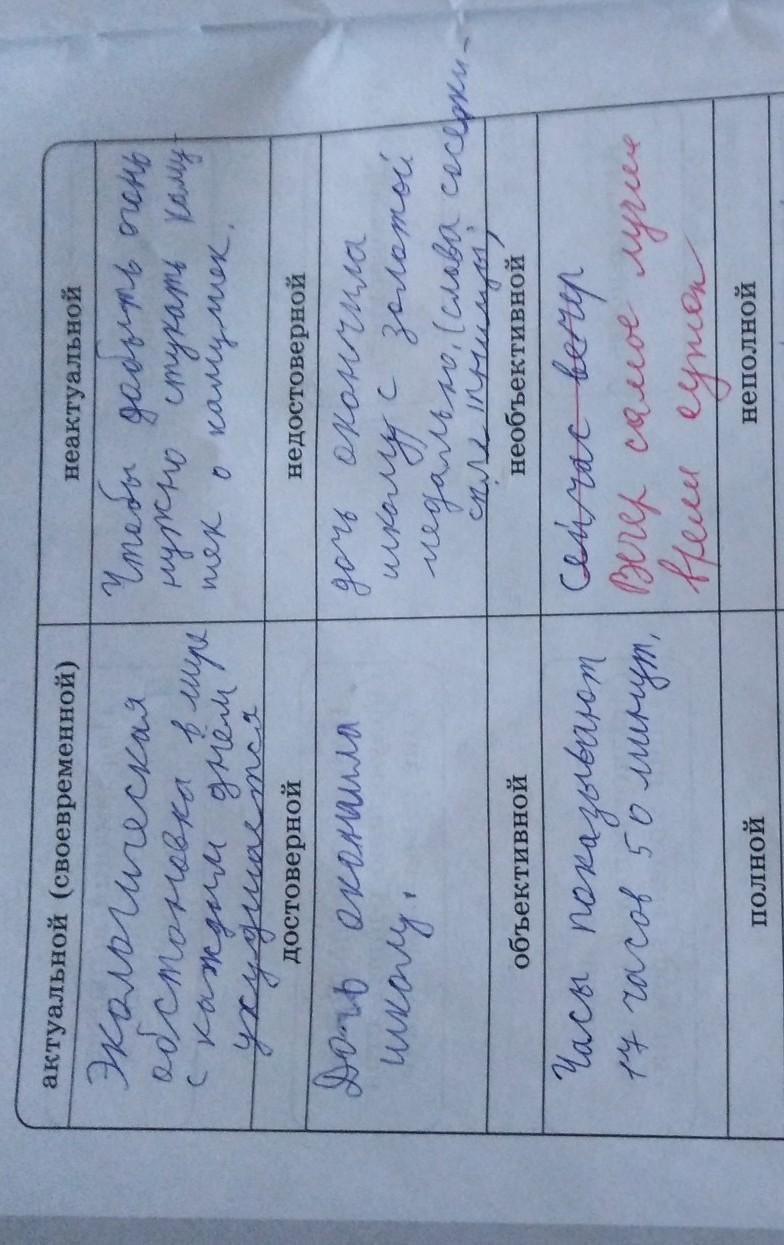 актуальной (своевременной)
неактуальной
Экологическая
обстановка в мире
с каждым днём
ухудшается
Чтобы добыть огонь
нужно стукать каму-
шек о камушек.
достоверной
недостоверной
Дочь окончила
школу.
дочь окончила
школу с золотой
медалью, (слова соседки-
объективной
необъективной
Часы показывают
17 часов 50 минут.
Сейчас вечер
Вечер самое лучшее
время суток
полной
неполной